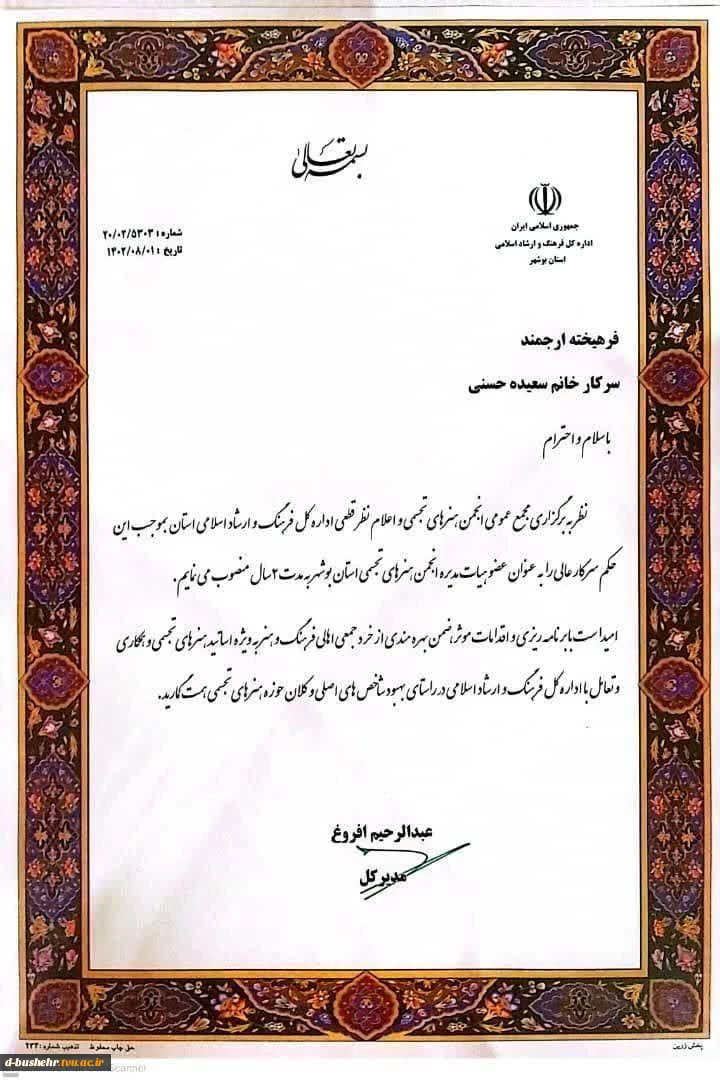 بسمه تعالی
جمهوری اسلامی ایران
اداره کل فرهنگ و ارشاد اسلامی
استان بوشهر
شماره : ۲۰/۰۲/۵۳۰۳
تاریخ : ۱۴۰۲/۰۸/۰۱
فرهیخته ارجمند
سرکار خانم سعیده حسنی
با سلام و احترام
نظر به برگزاری مجمع عمومی انجمن هنرهای تجسمی و اعلام نظر قطعی اداره کل فرهنگ و ارشاد اسلامی استان بموجب این
حکم سرکار عالی را به عنوان عضو هیات مدیره انجمن هنرهای تجسمی استان بوشهر به مدت ۲ سال منصوب می نمایم .
امید است با برنامه ریزی و اقدامات موثر ضمن بهره مندی از خرد جمعی اهالی فرهنگ و هنر به ویژه اساتید هنرهای تجسمی و همکاری
و تعامل با اداره کل فرهنگ و ارشاد اسلامی در راستای بهبود شاخص های اصلی و کلان حوزه هنرهای تجسمی همت گمارید .
عبدالرحیم افروغ
مدیر کل
پخش زرین
حق چاپ محفوظ تذهیب شماره : ۲۳۴
d-bushehr.tvu.ac.ir